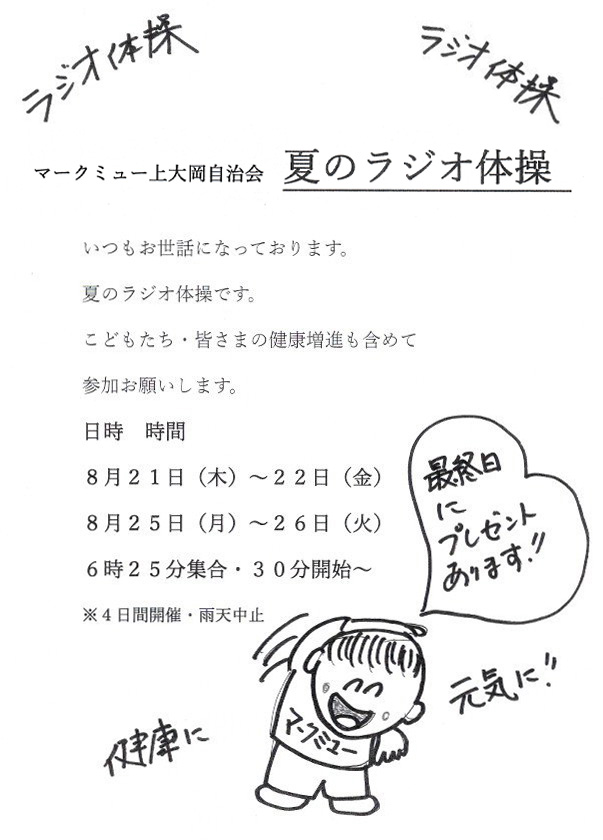 ラジオ体操
ラジオ体操
マークミュー上大岡自治会 夏のラジオ体操
いつもお世話になっております。
夏のラジオ体操です。
こどもたち・皆さまの健康増進も含めて
参加お願いします。
日時　時間
８月２１日（木）～２２日（金）
８月２５日（月）～２６日（火）
６時２５分集合・３０分開始～
※４日間開催・雨天中止
最終日
に
プレゼント
あります!!
元気に!!
マークミュー
健康に